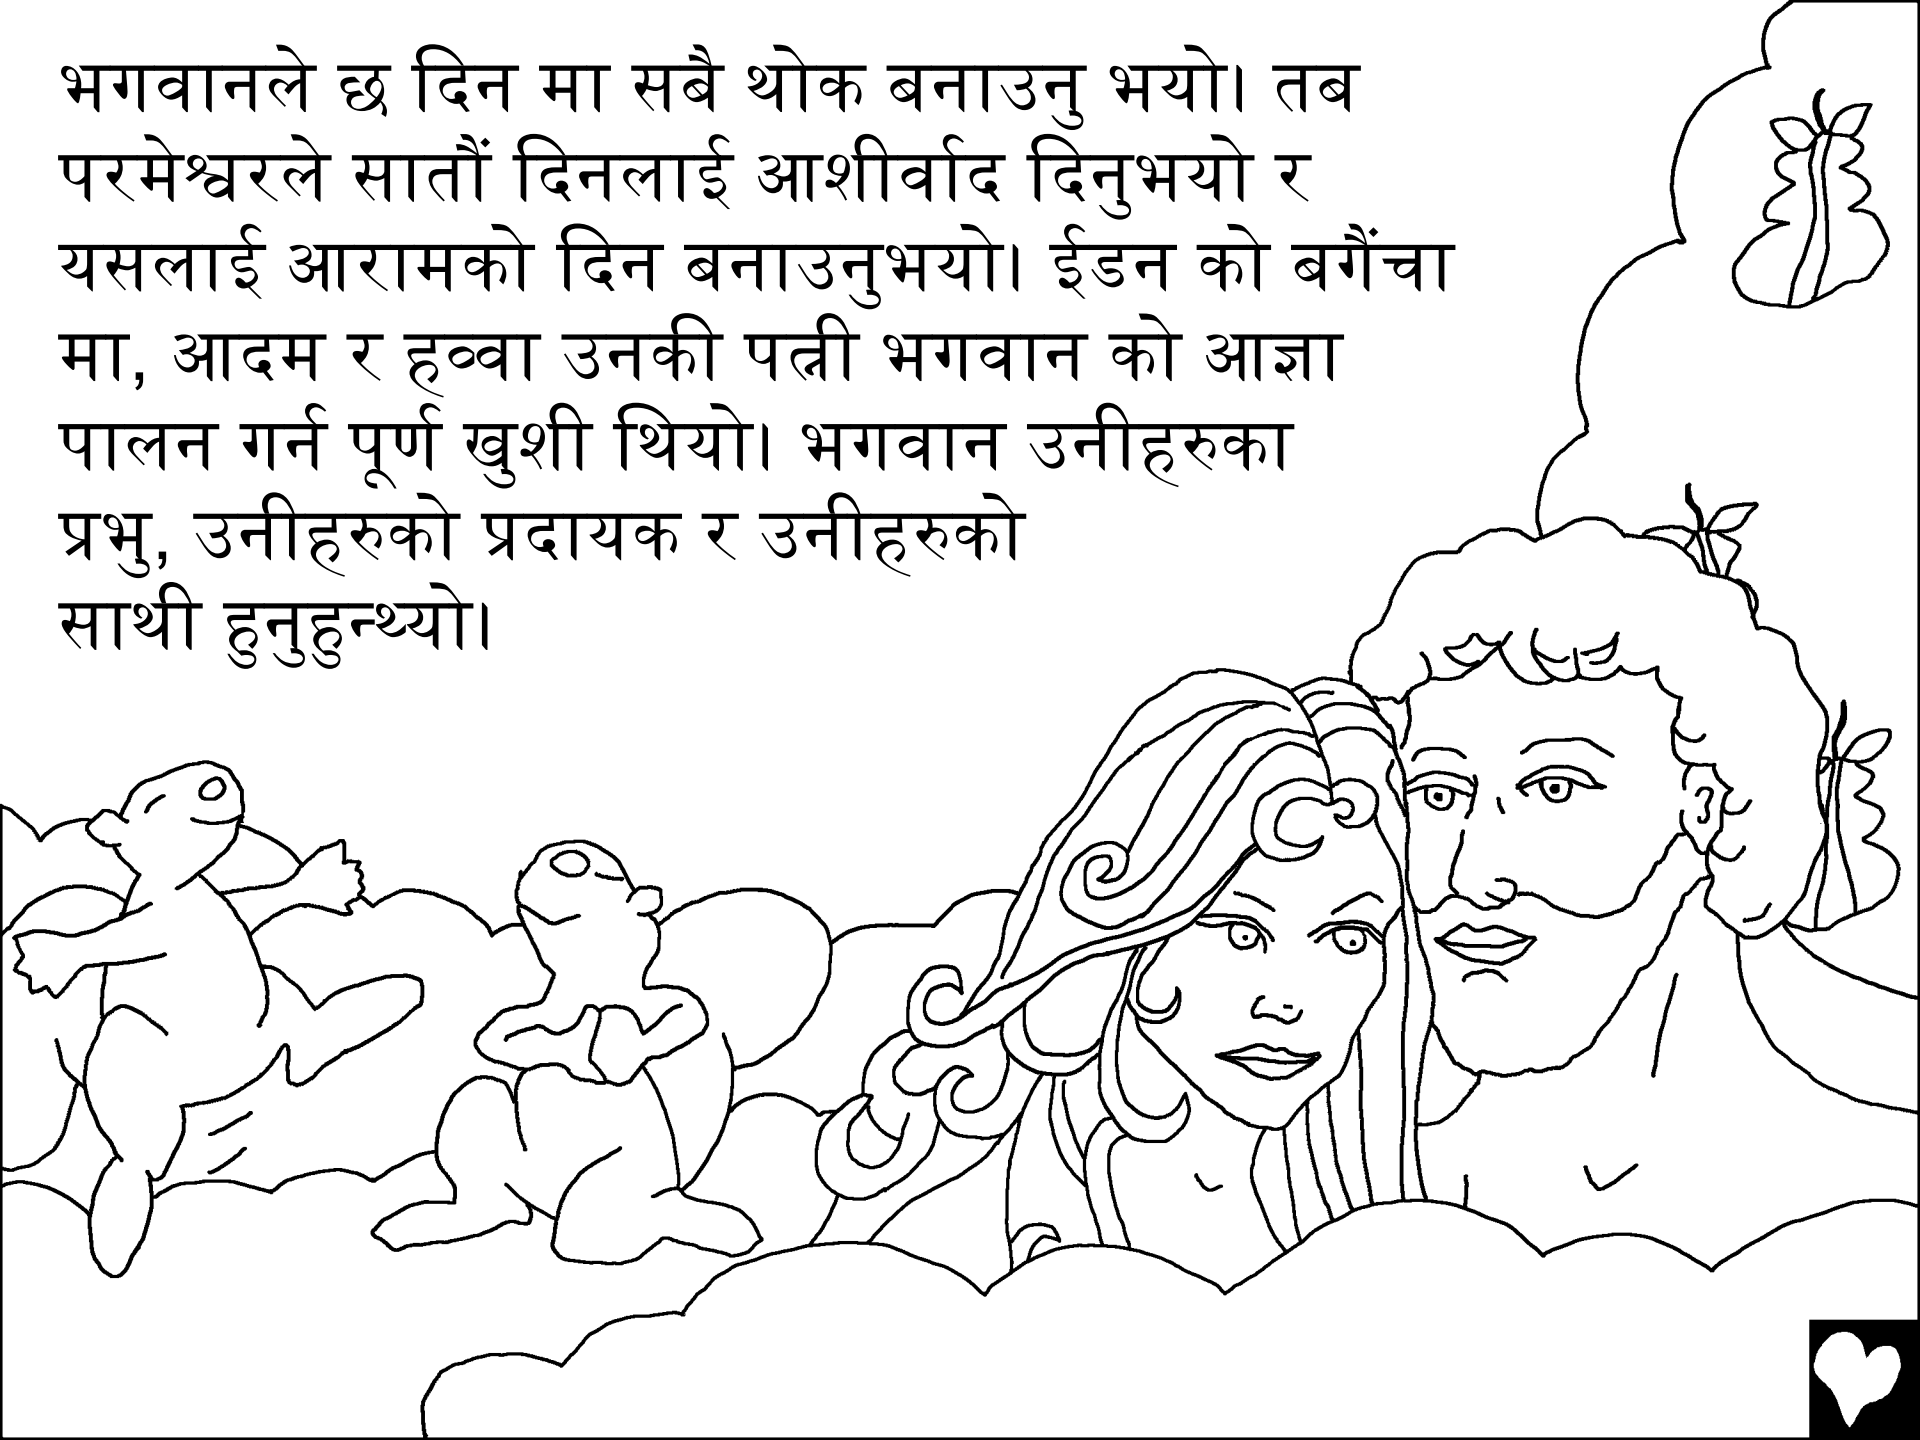 भगवानले छ दिन मा सबै थोक बनाउनु भयो। तब
परमेश्वरले सातौं दिनलाई आशीर्वाद दिनुभयो र
यसलाई आरामको दिन बनाउनुभयो। ईडन को बगैंचा
मा, आदम र हव्वा उनकी पत्नी भगवान को आज्ञा
पालन गर्न पूर्ण खुशी थियो। भगवान उनीहरुका
प्रभु, उनीहरुको प्रदायक र उनीहरुको
साथी हुनुहुन्थ्यो।